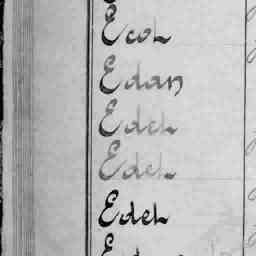 Ecol
Edan
Edel
Edel
Edel